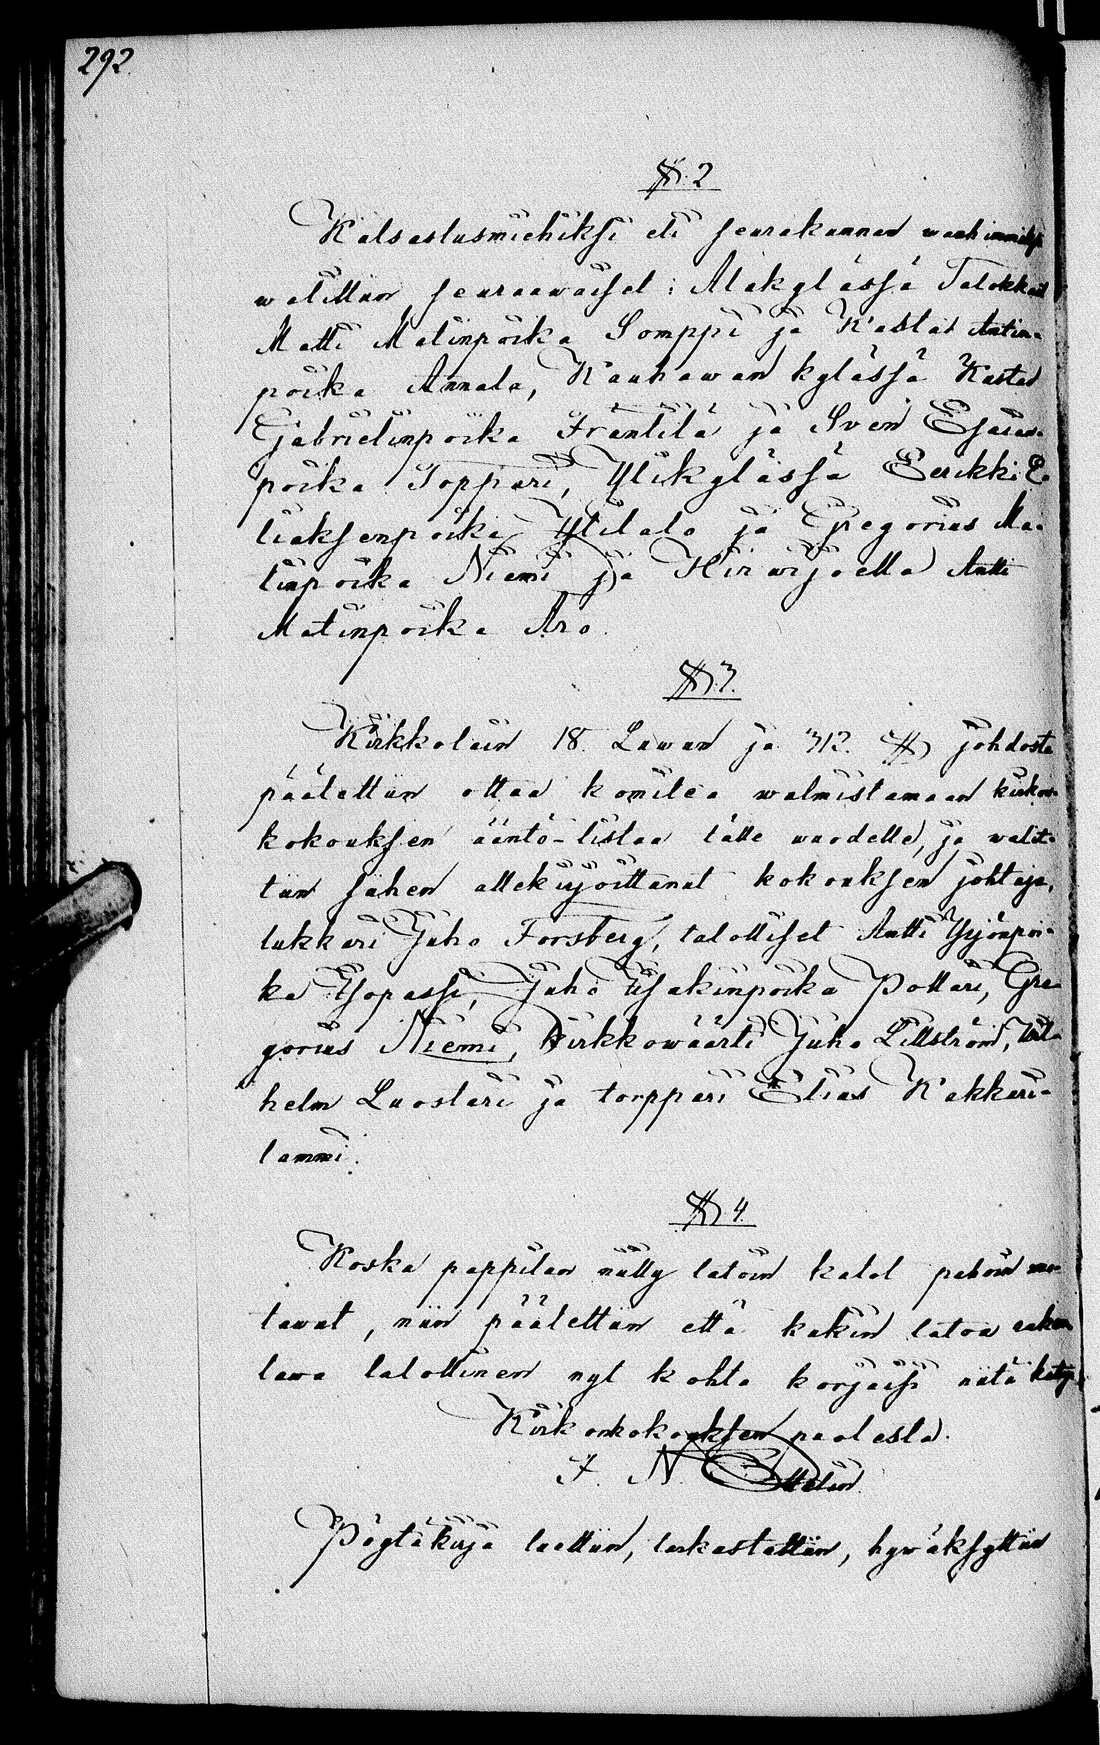 292.
§. 2
Katsastusmiehiksi eli seurakunnan wanhimmiksi
walittiin seuraawaiset: Alakylässä Talokkaat
Matti Matinpoika Somppi ja Kustaa Antin-
poika Annala, Kauhawan kylässä Kustaa
Gabrielinpoika Frantilä ja Sven Esaian-
poika Toppari, Ylikylässä Eerikki E-
liaksenpoika Ylitalo ja Gregorius Ma-
tinpoika Niemi ja Hirwijoella Antti
Matinpoika Aro.
§. 3.
Kirkkolain 18. Luwun ja 312. § johdosta
päätettiin ottaa komitea walmistamaan kirkon-
kokouksen ääntö-listaa tälle wuodelle, ja walit-
tiin siihen allekirjoittanut kokouksen johtaja,
lukkari Juho Forsberg, talolliset Antti Yrjönpoi-
ka Juho Isakinpoika Pottari, Gre-
gorius Niemi, Kirkkowäärti Juho Lillström, Wil-
helm Luostari ja torppari Elias Kakkuri-
lammi.
§ 4.
Koska pappilan niitty latoin katot pahoin wuo-
tawat, niin päätettiin että kukin latoa raken-
tawa talollinen nyt kohta korjaisi niitä
Kirkonkokouksen puolesta.
J. N.
Pöytäkirja luettiin, tarkastettiin, hywäksyttiin